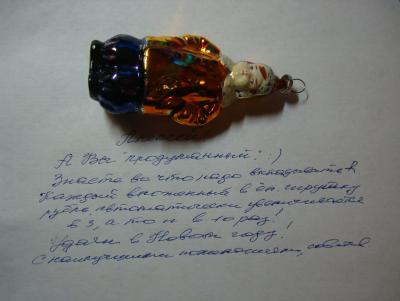 А Вы "продуманный" :)
Знаете во что надо вкладывать
Каждый вложенный в ёл. игрушку
рубль автоматически увеличивается
в 3, а то и в 10 раз!
Удачи в Новом году!
С наилучшими пожеланиями,